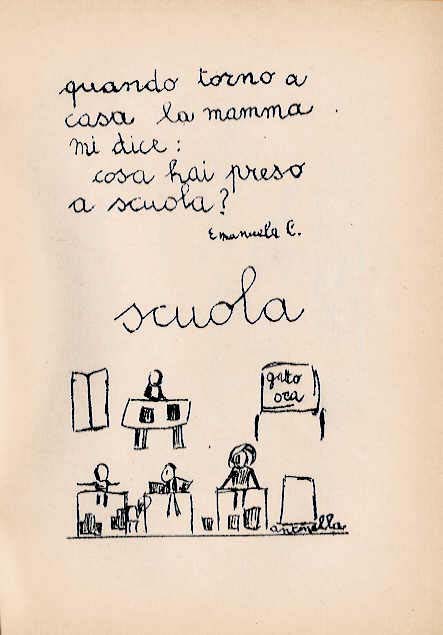 quando torno a
casa la mamma
mi dice:
cosa hai preso
a scuola?
Emanuela C.
scuola
gatto
oca
antonella